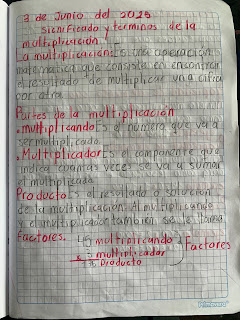 2 de Junio del 2025
Significado y terminos de la
multiplicación.
a multiplicación: Es una operación
matemática que consiste en encontrar
el resultado de multiplicar una cifra
por otra.
Partes de la multiplicación
. multiplicando Es el número que va a
ser multiplicado.
. Multiplicador Es el componente que
indica cuantas veces se va a sumar
el multiplicado.
Producto Es el resultado o solución
de la multiplicación. Al multiplicando
y el multiplicador tambien se le llama
Factores.
multiplicando
multiplicador
Factores
Producto